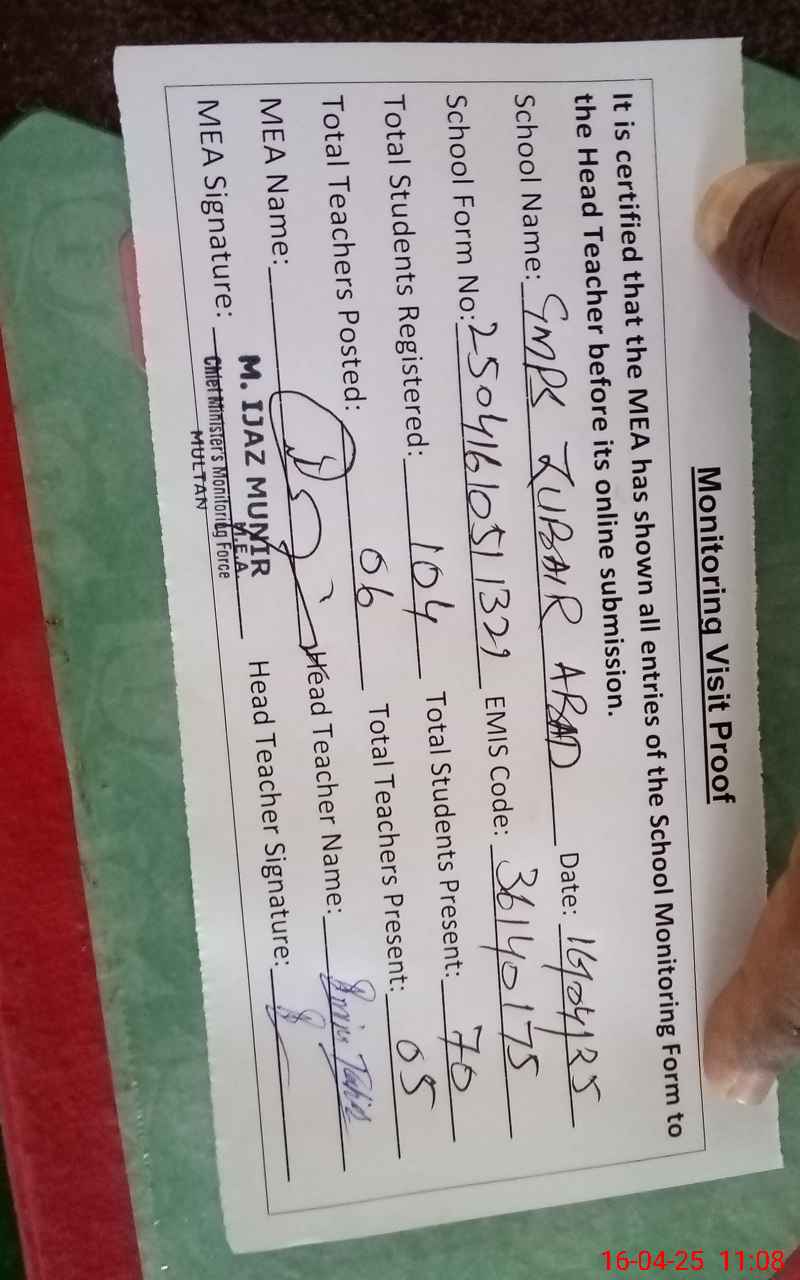 Monitoring Visit Proof
It is certified that the MEA has shown all entries of the School Monitoring Form to
the Head Teacher before its online submission.
School Name: GMPS ZUBAIR ABAD Date: 16/04/25
School Form No: 25041610511329 EMIS Code: 36140175
Total Students Registered: 104 Total Students Present: 70
Total Teachers Posted: 06 Total Teachers Present: 05
MEA Name: Head Teacher Name:
M. IJAZ MUNIR
M.E.A.
MEA Signature: Head Teacher Signature:
Chief Minister's Monitoring Force
MULTAN
16-04-25 11:08